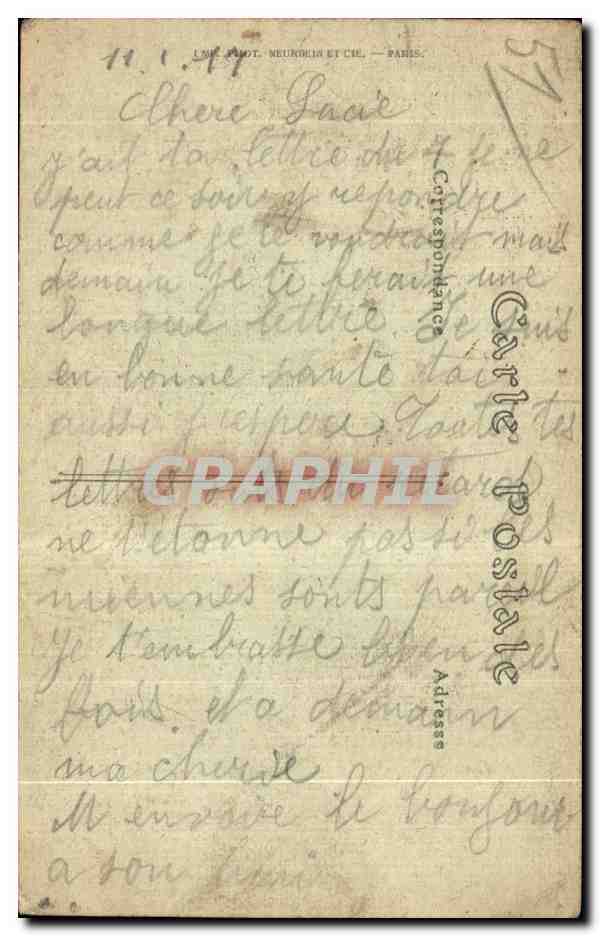 IMP. PHOT. NEURDEIN ET CIE. — PARIS.
51
11.1.
Chere Lucie
y'ait ta lettre du 7 je ne
peut ce soir y repondre
comme je le voudrait mais
demain je te ferait une
longue lettre. Je suis
en bonne santé toi
aussi j'espere. Toute tes
lettres ont du retard
ne t'étonne pas si les
miennes sonts pareil
Je t'embrasse bien des
fois et a demain
ma cherie
M envoie le bonjour
a son
Correspondance
Carte Postale
Adresse
CPAPHIL